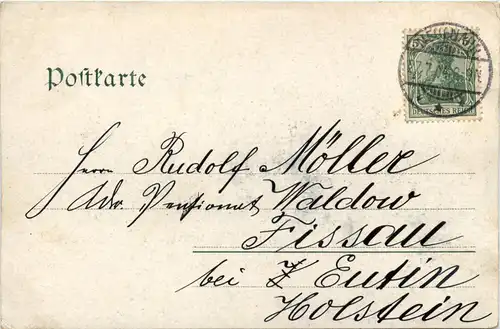 Postkarte
DEUTSCHES REICH
Herrn Rudolf Möller
Adr. Pensionat Waldow
Fissau
bei Eutin
Holstein